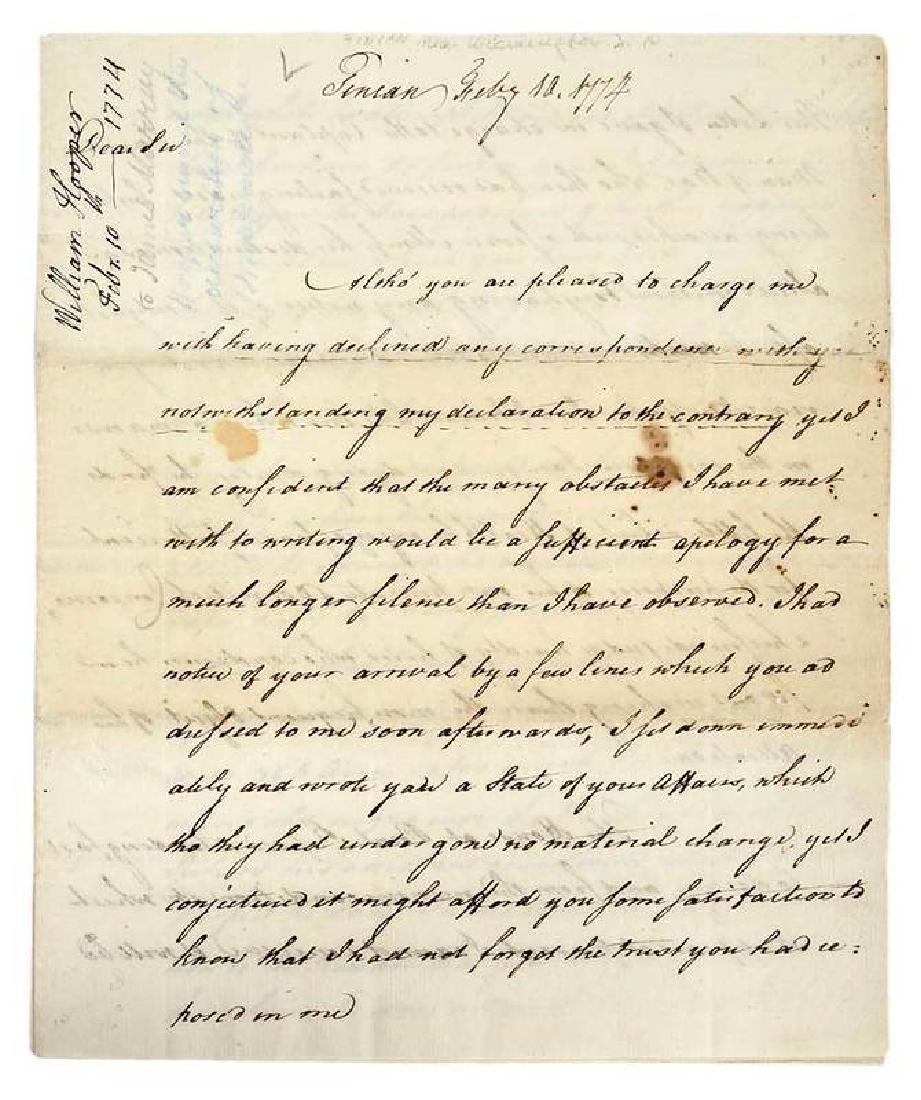 Finian near Wilmington N. C
Finian Feby 10. 1774
William Hooper
Febr. 10th 1774
to James Murray
Dear Sir
Altho' you are pleased to charge me
with having declined any correspondence with you
notwithstanding my declaration to the contrary yet I
am confident that the many obstacles I have met
with to writing would be a sufficient apology for a
much longer silence than I have observed. I had
notice of your arrival by a few lines which you ad
dressed to me soon afterwards, I set down immedi
ately and wrote you a State of your Affairs, which
tho they had undergone no material change, yet I
conjectured it might afford you some satisfaction to
know that I had not forgot the trust you had re:
posed in me